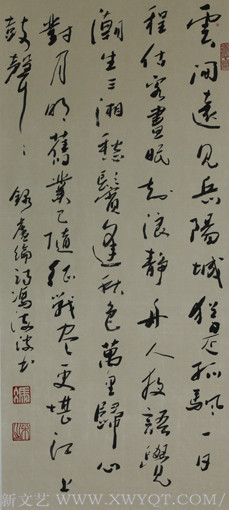 雲開遠見漢陽城猶是孤帆一日
程估客晝眠知浪靜舟人夜語覺
潮生三湘愁鬢逢秋色萬里歸心
對月明舊業已隨征戰盡更堪江上
鼓聲
錄盧綸詩馮波书
新文艺 / WWW.XWYQT.COM